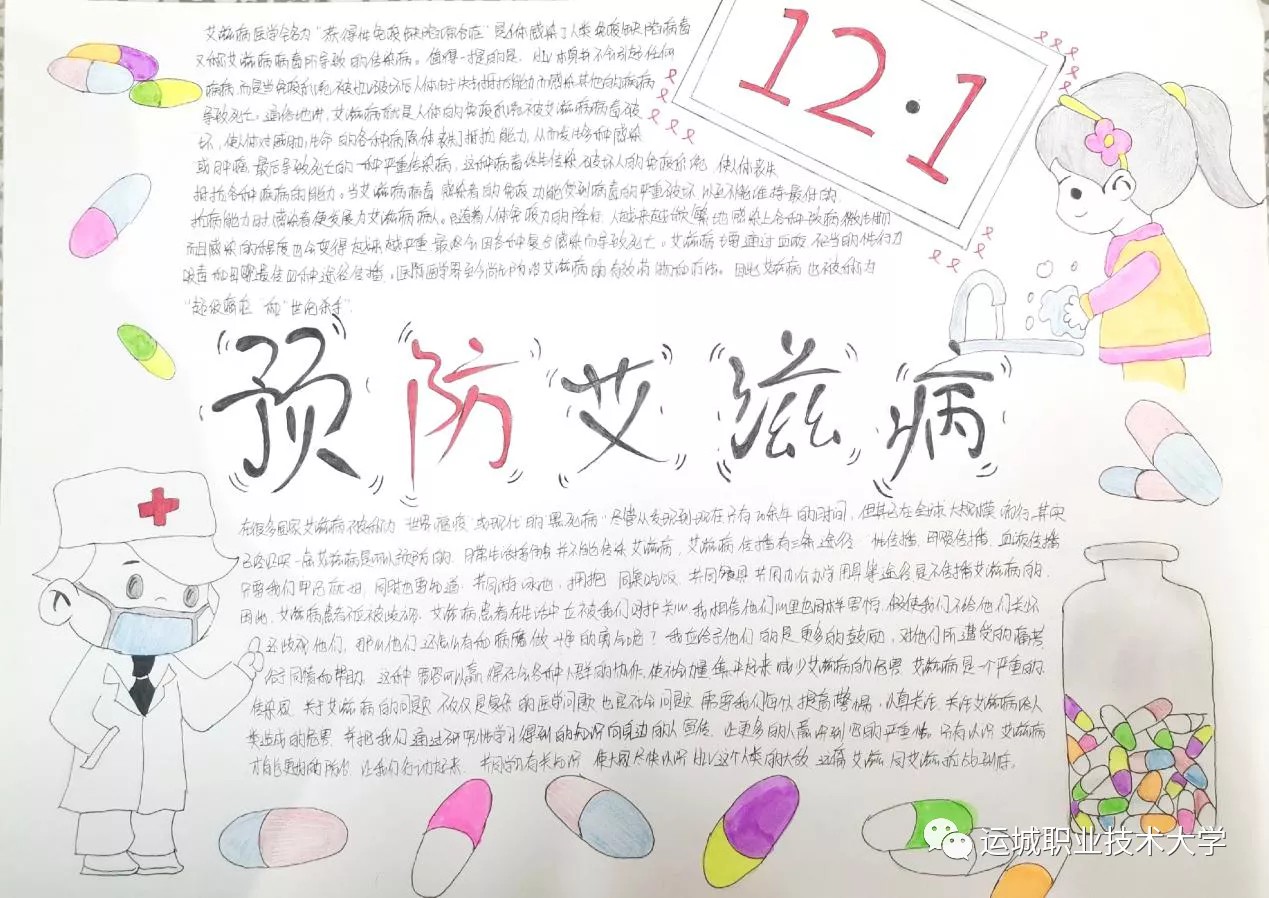 艾滋病医学全名为“获得性免疫缺陷综合症”是人体感染了人类免疫缺陷病毒
又称艾滋病病毒所导致的传染病。值得一提的是，HIV本身并不会引起任何
疾病，而是当免疫系统被HIV破坏后人体由于失去抵抗能力而感染其他的疾病
导致死亡。通俗地讲，艾滋病就是人体的免疫系统被艾滋病病毒破
坏，使人体对威胁生命的各种病原体丧失了抵抗能力，从而发生多种感染
或肿瘤，最后导致死亡的一种严重传染病，这种病毒终生传染，破坏人的免疫系统，使人体丧失
抵抗各种疾病的能力。当艾滋病病毒感染者的免疫功能受到病毒的严重破坏，以至不能维持最低的
抗病能力时，感染者便发展为艾滋病病人。随着人体免疫力的降低，人会越来越频繁地感染上各种致病微生物
而且感染的程度也会变得越来越严重，最终会因各种复合感染而导致死亡。艾滋病主要通过血液、不当的性行为
吸毒和母婴遗传四种途径传播。国际医学界至今尚无防治艾滋病的有效药物和疗法。因此艾滋病也被称为
“超级癌症”和“世纪杀手”
12·1
预防艾滋病
在很多国家艾滋病被称为“世界瘟疫”或现代的“黑死病”尽管从发现到现在只有20余年的时间，但其已在全球大规模流行，其实
艾滋病是可以预防的，日常生活接触并不能传染艾滋病，艾滋病传播有三条途径：性传播、母婴传播、血液传播
只要我们牢记在心，同时也要知道，共同游泳池，拥抱，同桌吃饭，共同办公办学用具等途径是不传播艾滋病的，
因此，艾滋病患者不应被歧视，艾滋病患者在生活中应被我们呵护关心，我相信他们心里也同样害怕，假使我们不给他们关怀
还歧视他们，那么他们还怎么有和病魔做斗争的勇气呢？我应给予他们的是更多的鼓励，对他们所遭受的痛苦
给予同情和帮助，这种需要可以赢得社会各种人群的协作，使社会力量集中起来减少艾滋病的危害，艾滋病是一个严重的
传染病，关于艾滋病的问题不仅仅是复杂的医学问题也是社会问题，需要我们百倍提高警惕，认真关注，关注艾滋病给人
类造成的危害，并把我们通过研究性学习得到的知识向身边的人宣传，让更多的人意识到它的严重性，只有认识艾滋病
才能更好的预防，让我们行动起来，共同的有关知识，使大家尽快认识HIV这个人类的大敌，远离艾滋，同艾滋抗战到底。
运城职业技术大学